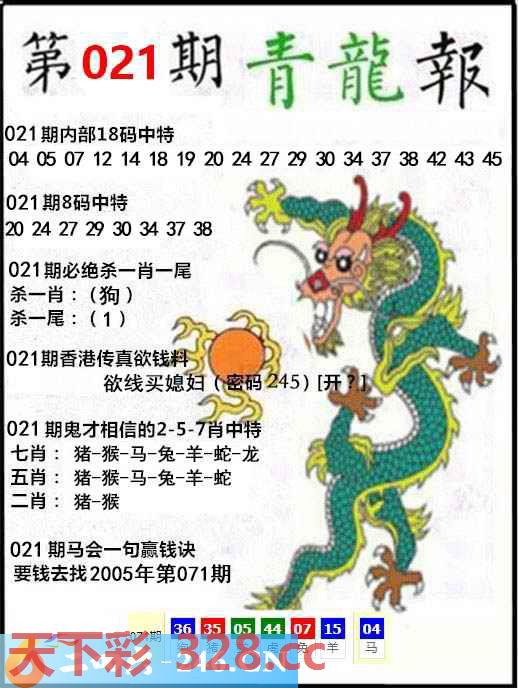 第021期青龍報
021期内部18码中特
04 05 07 12 14 18 19 20 24 27 29 30 34 37 38 42 43 45
021期8码中特
20 24 27 29 30 34 37 38
021期必绝杀一肖一尾
杀一肖：（狗）
杀一尾：（1）
021期香港传真欲钱料
欲线买媳妇（密码245）[开？]
021期鬼才相信的2-5-7肖中特
七肖：猪-猴-马-兔-羊-蛇-龙
五肖：猪-猴-马-兔-羊-蛇
二肖：猪-猴
021期马会一句赢钱诀
要钱去找2005年第071期
071期 36 35 05 44 07 15 04
虎 兔 羊 马
天下彩-328.cc